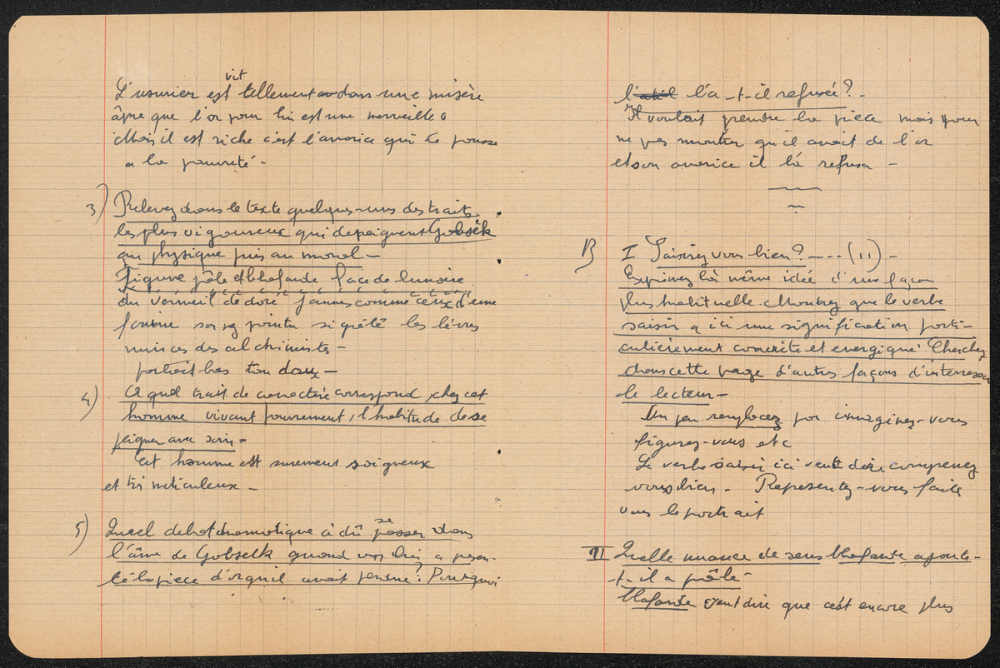 vit
L'usurier est tellement dans une misère
âpre que l'or pour lui est une merveille
Mais il est riche c'est l'avarice qui le pousse
a la pauvreté -
3) Relevez dans le texte quelques-uns des traits
les plus vigoureux qui depeignent Gobsek
au physique puis au moral -
Figure pâle et blafarde face de lunaire
du vermeil dédoré jaunes comme ceux d'une
fouine son nez pointu si grêlé les lèvres
minces des alchimistes -
parlait bas ton doux -
4) A quel trait de caractère correspond chez cet
homme vivant pauvrement, l'habitude de se
peigner avec soin -
Cet homme est surement soigneux
et très méticuleux -
5) Quel debat dramatique à dû se passer dans
l'âme de Gobseck quand on lui a présen-
té la piece d'or qu'il avait perdue? Pourquoi
l'a-t-il refusée? -
Il voulait prendre la piece mais pour
ne pas montrer qu'il avait de l'or
et son avarice il la refusa -
B) I Saisirez vous bien? --- (11) -
Exprimez la même idée d'une façon
plus habituelle. Montrez que le verbe
saisir a ici une signification parti-
culièrement concrète et energique Cherchez
dans cette page d'autres façons d'interesser
le lecteur -
On peu remplacez par imaginez-vous
figurez-vous etc
Le verbe saisir ici veut dire comprenez
vous bien - Representez-vous faite
vous le portrait
II Quelle nuance de sens blafarde ajoute-
t-il a pâle -
blafarde veut dire que c'est encore plus